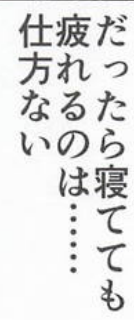 だったら寝てても
疲れるのは……
仕方ない